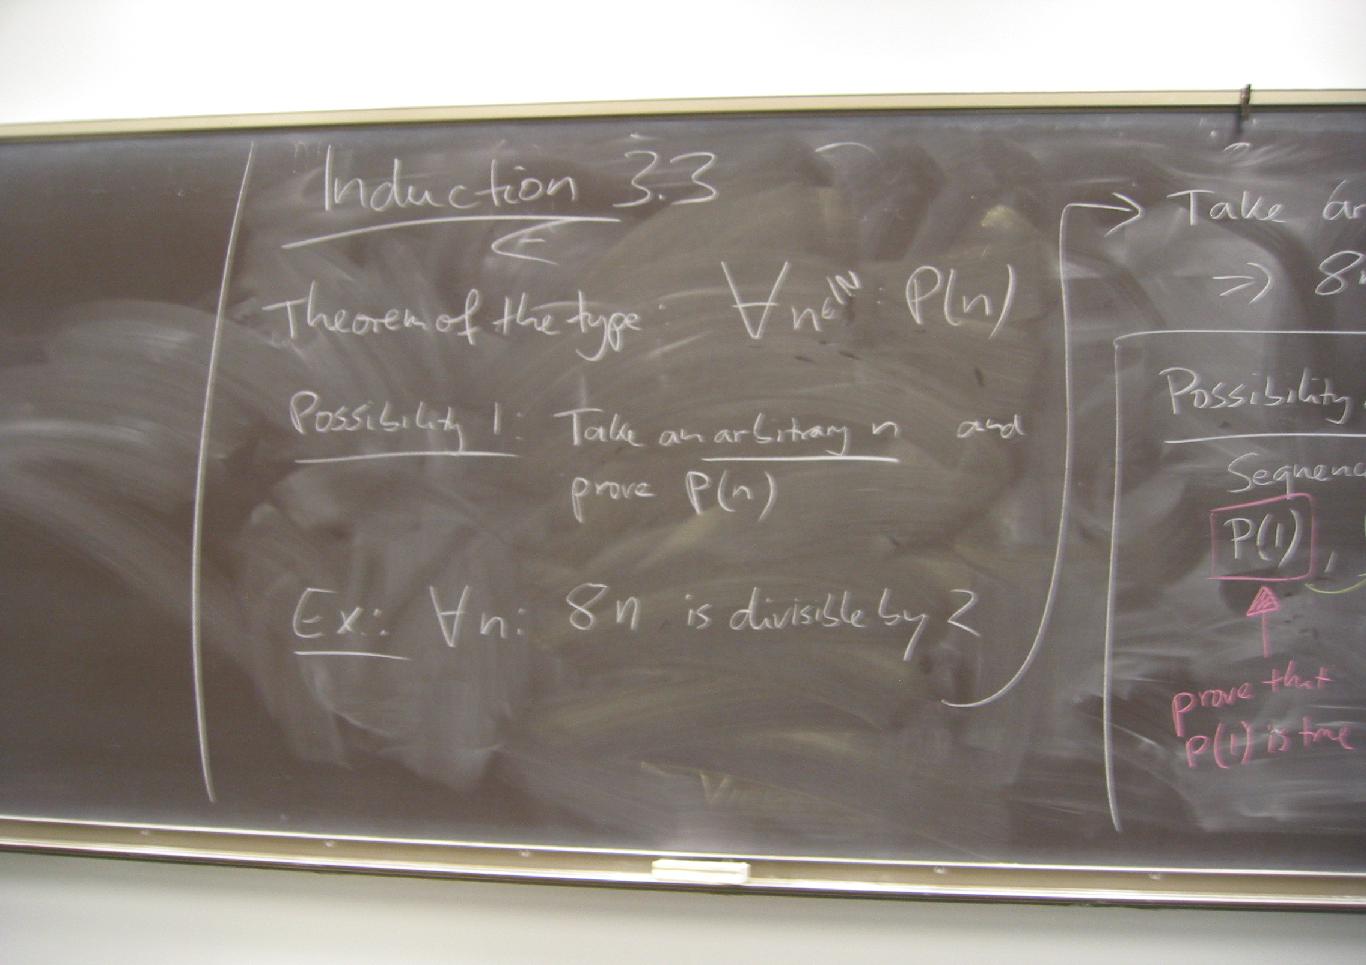 Induction 3.3
Theorem of the type: ∀n∈ℕ: P(n)
Possibility 1: Take an arbitrary n and
prove P(n)
Ex: ∀n: 8n is divisible by 2
→ Take
⇒ 8n
Possibility
Sequenc
P(1),
prove that
P(1) is true